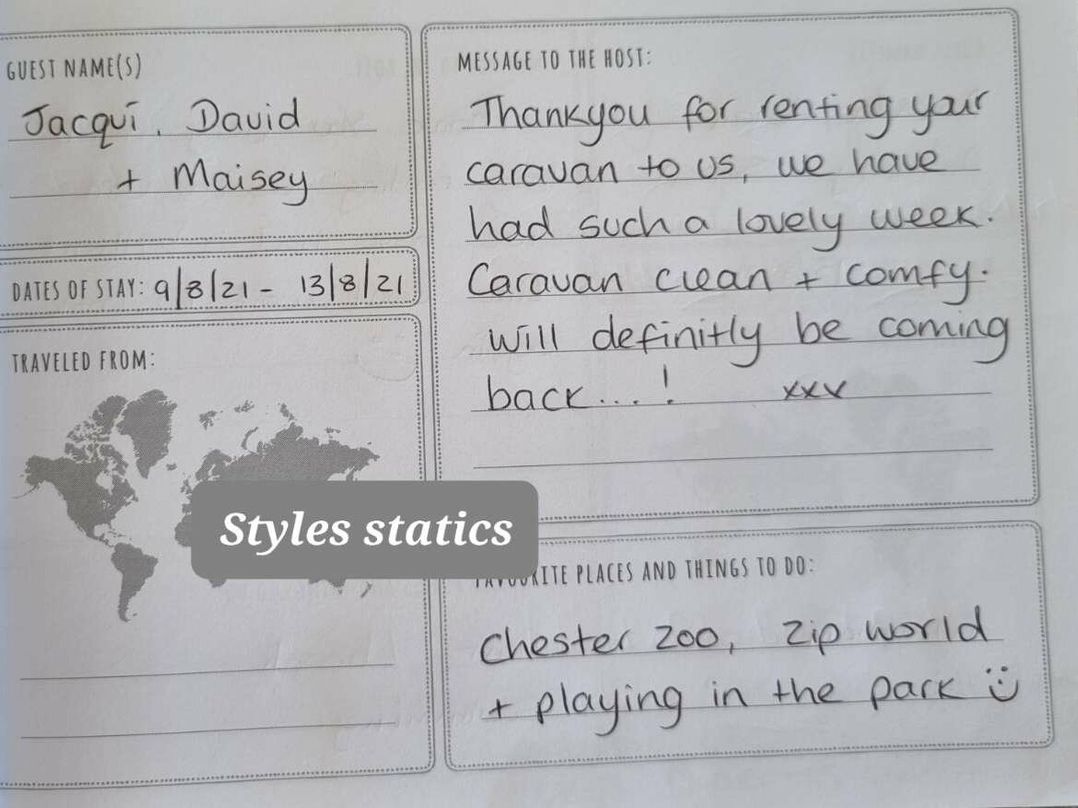 GUEST NAME(S)
Jacqui, David
+ Maisey
DATES OF STAY: 9/8/21 - 13/8/21
TRAVELED FROM:
MESSAGE TO THE HOST:
Thankyou for renting your
caravan to us, we have
had such a lovely week.
Caravan clean + comfy.
will definitly be coming
back...! xxx
Styles statics
FAVOURITE PLACES AND THINGS TO DO:
Chester zoo, Zip world
+ playing in the park